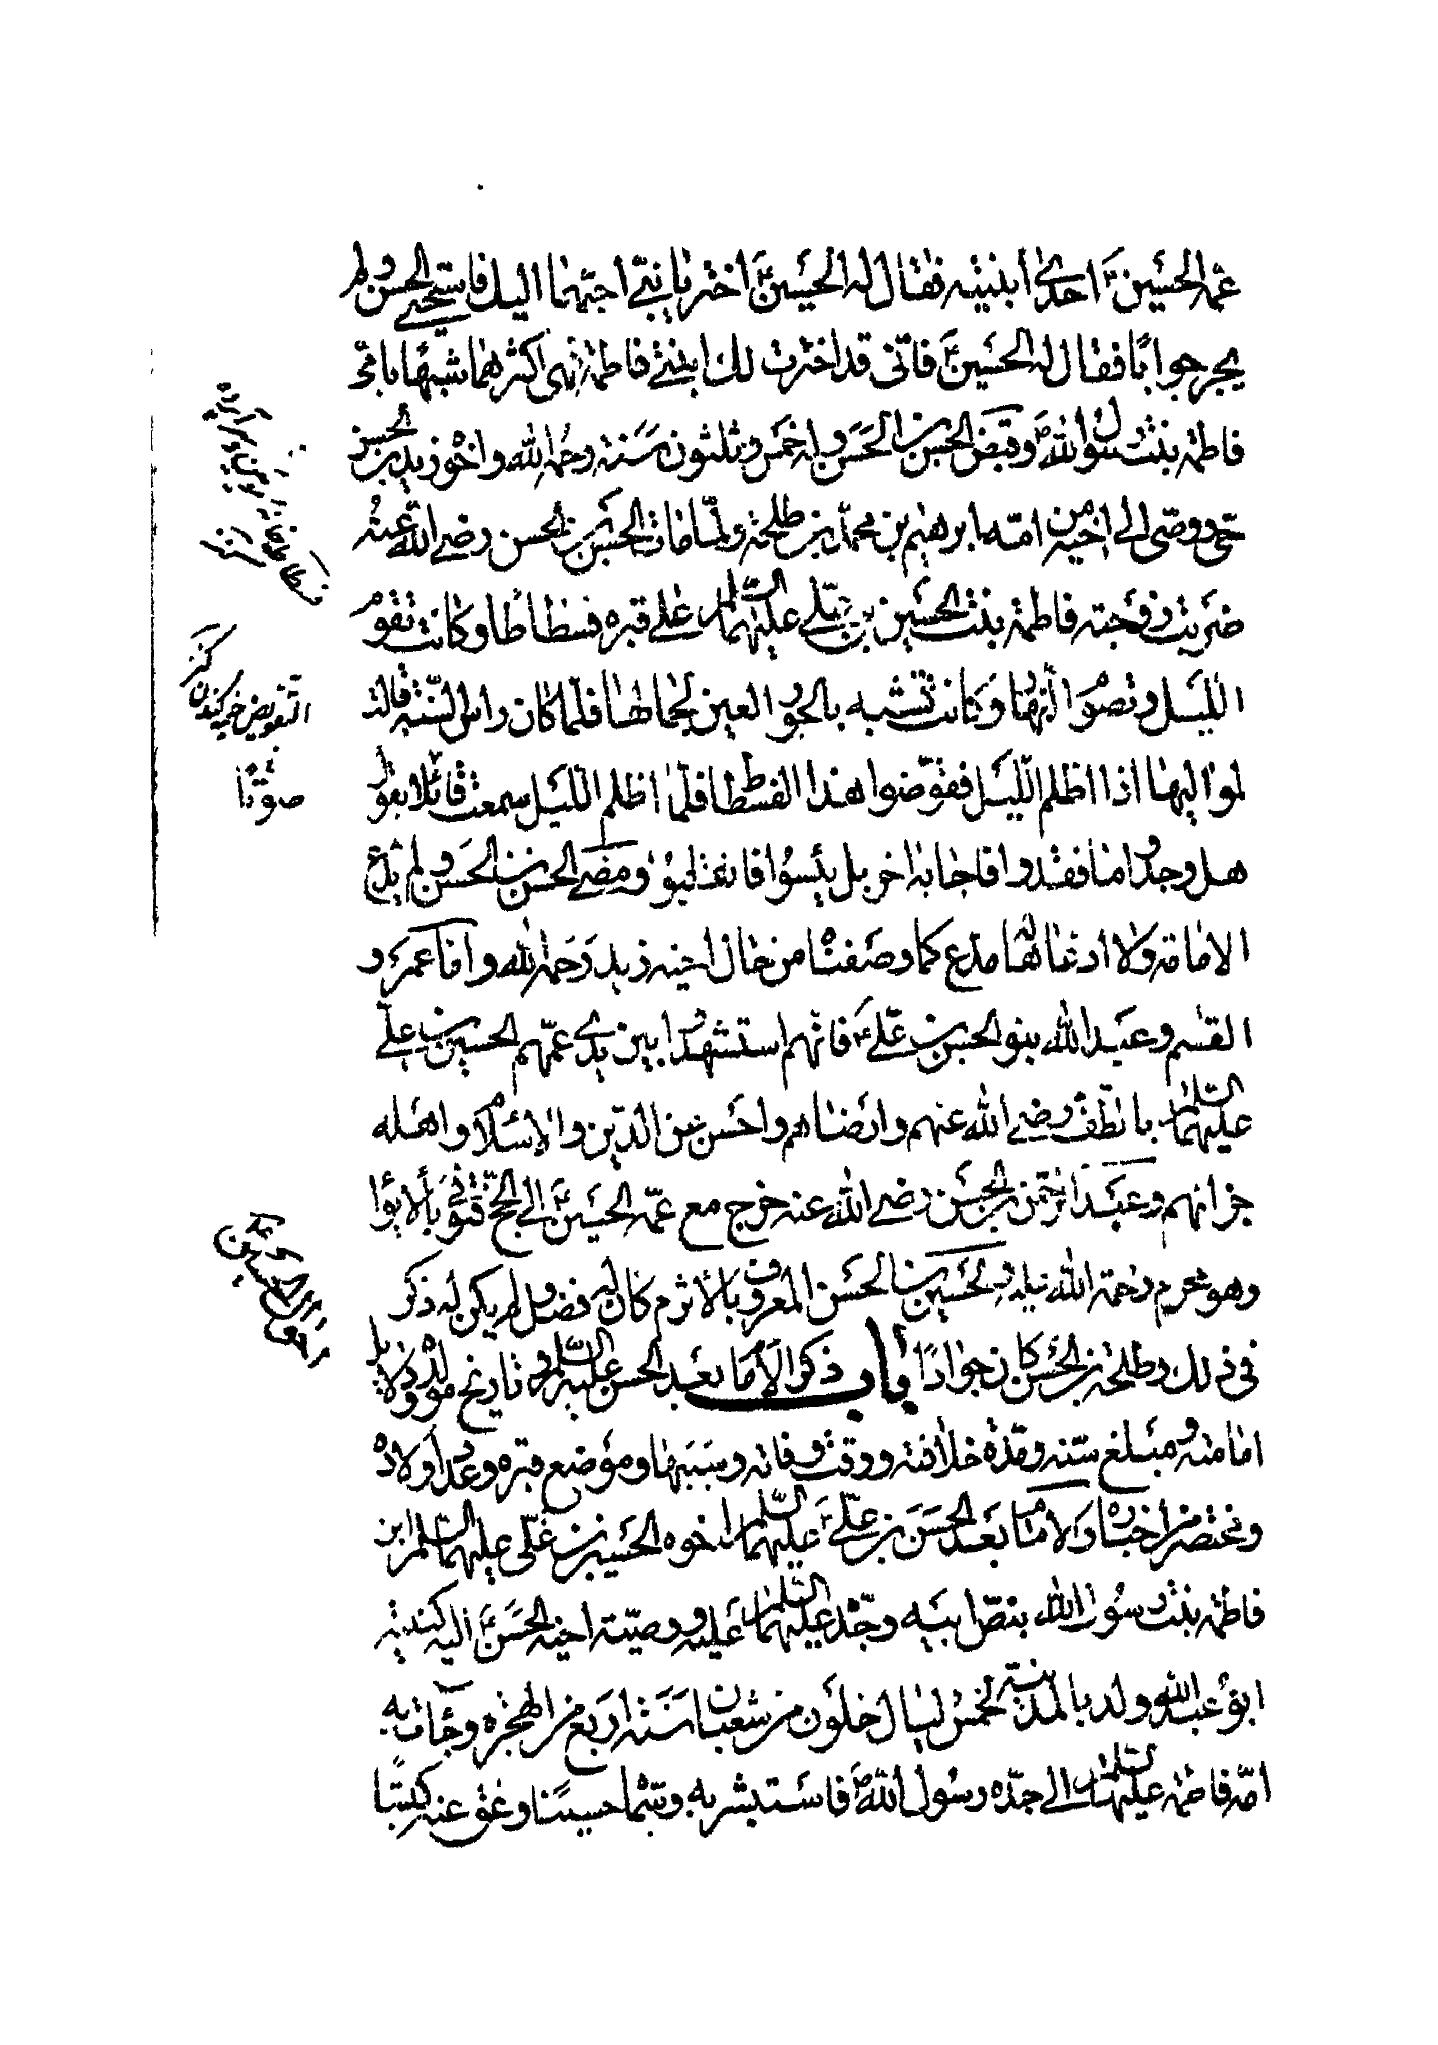 عمه الحسين ع احدى ابنيته فقال له الحسين ع اختر يا بني احبهما اليك فاستحيى الحسن ولم
يحر جوابا فقال له الحسين ع فاني قد اخترت لك ابنتي فاطمة فهي اكثرهما شبها بامي
فاطمة بنت رسول الله ص وقبض الحسن بن الحسن وله خمس وثلثون سنة رحمه الله واخوه زيد بن الحسن
حي ووصى الى اخيه من امه ابرهيم بن محمد بن طلحة ولما مات الحسن بن الحسن رضي الله عنه
ضربت زوجته فاطمة بنت الحسين بن علي عليهما السلام على قبره فسطاطا وكانت تقوم
الليل وتصوم النهار وكانت تشبه بالحور العين لجمالها فلما كان راس السنة قالت
لمواليها اذا اظلم الليل فقوضوا هذا الفسطاط فلما اظلم الليل سمعت قائلا يقول
هل وجدوا ما فقدوا فاجابه اخر بل يئسوا فانقلبوا ومضى الحسن بن الحسن ولم يدع
الامامة ولا ادعاها له مدع كما وصفنا من حال اخيه زيد رحمه الله واما عمرو و
القسم وعبد الله بنو الحسن بن علي ع فانهم استشهدوا بين يدي عمهم الحسين بن علي
عليهما السلام بالطف رضي الله عنهم وارضاهم واحسن عن الدين والاسلام واهله
جزائهم وعبد الرحمن بن الحسن رضي الله عنه خرج مع عمه الحسين ع الى الحج فتوفي بالابوا
وهو محرم رحمة الله عليه والحسين بن الحسن المعروف بالاثرم كان له فضل ولم يكن له ذكر
في ذلك وطلحة بن الحسن كان جوادا باب ذكر الامام بعد الحسن عليه السلام وتاريخ مولده ودلايل
امامته ومبلغ سنه ومدة خلافته ووقت وفاته وسببها وموضع قبره وعدد اولاده
ومختصر من اخباره والامام بعد الحسن بن علي ع عليهما السلام اخوه الحسين بن علي عليهما السلام ابن
فاطمة بنت رسول الله بنص ابيه وجده عليهما السلام عليه ووصية اخيه الحسن ع اليه كنيته
ابو عبد الله ولد بالمدينة لخمس ليال خلون من شعبان سنة اربع من الهجرة وجائت به
امه فاطمة عليها السلام الى جده رسول الله ص فاستبشر به وسماه حسينا وعق عنه كبشا
التقويض خيمه كندن
كنز
صوتا